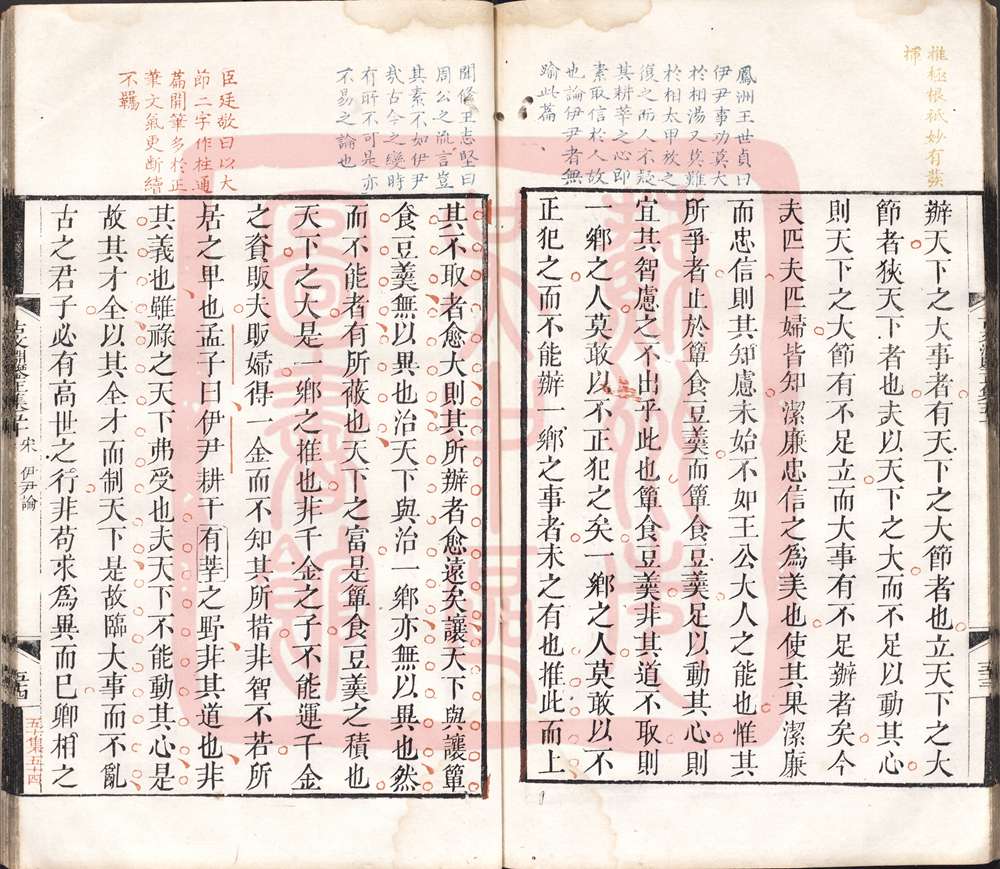 推極根柢妙有發
揮
鳳洲王世貞曰
伊尹事功莫大
於相湯又莫難
於相太甲放之
復之而人不疑
其耕莘之心即
素取信於人故
也論伊尹者無
踰此篇
辦天下之大事者有天下之大節者也立天下之大
節者狹天下者也夫以天下之大而不足以動其心
則天下之大節有不足立而大事有不足辦者矣今
夫匹夫匹婦皆知潔廉忠信之為美也使其果潔廉
而忠信則其知慮未始不如王公大人之能也惟其
所爭者止於簞食豆羹而簞食豆羹足以動其心則
宜其智慮之不出乎此也簞食豆羹非其道不取則
一鄉之人莫敢以不正犯之矣一鄉之人莫敢以不
正犯之而不能辦一鄉之事者未之有也推此而上
聞修王志堅曰
周公之流言豈
其素不如伊尹
哉古今之變時
有所不可是亦
不易之論也
臣廷敬曰以大
節二字作柱通
篇開筆多於正
筆文氣更斷續
不羈
其不取者愈大則其所辦者愈遠矣讓天下與讓簞
食豆羹無以異也治天下與治一鄉亦無以異也然
而不能者有所蔽也天下之富是簞食豆羹之積也
天下之大是一鄉之推也非千金之子不能運千金
之資販夫販婦得一金而不知其所措非智不若所
居之卑也孟子曰伊尹耕于有莘之野非其道也非
其義也雖祿之天下弗受也夫天下不能動其心是
故其才全以其全才而制天下是故臨大事而不亂
古之君子必有高世之行非苟求為異而已卿相之
宋 伊尹論
五四
五集五十四